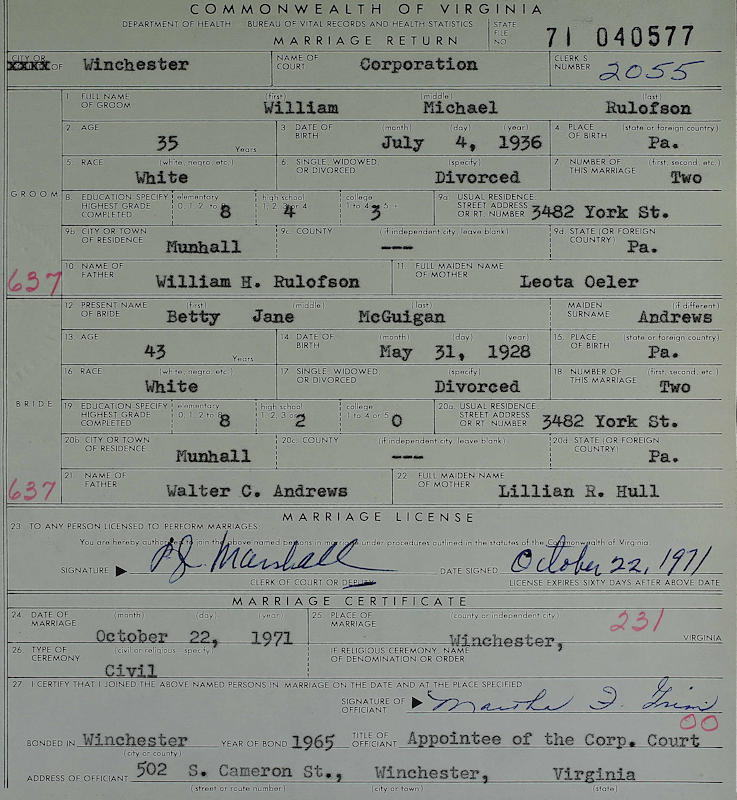 COMMONWEALTH OF VIRGINIA
DEPARTMENT OF HEALTH BUREAU OF VITAL RECORDS AND HEALTH STATISTICS
MARRIAGE RETURN
STATE FILE NO. 71 040577
CITY OR XXXX OF Winchester NAME OF COURT Corporation CLERK'S NUMBER 2055
GROOM
1 FULL NAME OF GROOM (first) William (middle) Michael (last) Rulofson
2 AGE 35 Years 3 DATE OF BIRTH (month) (day) (year) July 4, 1936 4 PLACE OF BIRTH (state or foreign country) Pa.
5. RACE (white, negro, etc.) White 6. SINGLE, WIDOWED OR DIVORCED (specify) Divorced 7 NUMBER OF THIS MARRIAGE (first, second, etc.) Two
8. EDUCATION SPECIFY HIGHEST GRADE COMPLETED elementary 0, 1, 2, to 8 8 high school 1, 2, 3 or 4 4 college 1 to 4 or 5+ 3 9a USUAL RESIDENCE STREET ADDRESS OR RT. NUMBER 3482 York St.
9b CITY OR TOWN OF RESIDENCE Munhall 9c COUNTY (if independent city, leave blank) --- 9d STATE (OR FOREIGN COUNTRY) Pa.
637 10 NAME OF FATHER William H. Rulofson 11. FULL MAIDEN NAME OF MOTHER Leota Oeler
BRIDE
12 PRESENT NAME OF BRIDE (first) Betty (middle) Jane (last) McGuigan MAIDEN SURNAME (if different) Andrews
13. AGE 43 Years 14 DATE OF BIRTH (month) (day) (year) May 31, 1928 15. PLACE OF BIRTH (state or foreign country) Pa.
16 RACE (white, negro, etc.) White 17. SINGLE, WIDOWED OR DIVORCED (specify) Divorced 18 NUMBER OF THIS MARRIAGE (first, second, etc.) Two
19 EDUCATION SPECIFY HIGHEST GRADE COMPLETED elementary 0, 1, 2 to 8 8 high school 1, 2, 3 or 4 2 college 1 to 4 or 5+ 0 20a USUAL RESIDENCE STREET ADDRESS OR RT. NUMBER 3482 York St.
20b CITY OR TOWN OF RESIDENCE Munhall 20c COUNTY (if independent city leave blank) --- 20d STATE (OR FOREIGN COUNTRY) Pa.
637 21 NAME OF FATHER Walter C. Andrews 22 FULL MAIDEN NAME OF MOTHER Lillian R. Hull
MARRIAGE LICENSE
23 TO ANY PERSON LICENSED TO PERFORM MARRIAGES:
You are hereby authorized to join the above named persons in marriage under procedures outlined in the statutes of the Commonwealth of Virginia.
SIGNATURE Marshall DATE SIGNED October 22, 1971
CLERK OF COURT OR DEPUTY LICENSE EXPIRES SIXTY DAYS AFTER ABOVE DATE
MARRIAGE CERTIFICATE
24. DATE OF MARRIAGE (month) (day) (year) October 22, 1971 25 PLACE OF MARRIAGE (county or independent city) Winchester, 231 VIRGINIA
26. TYPE OF CEREMONY (civil or religious - specify) Civil IF RELIGIOUS CEREMONY, NAME OF DENOMINATION OR ORDER
27 I CERTIFY THAT I JOINED THE ABOVE NAMED PERSONS IN MARRIAGE ON THE DATE AND AT THE PLACE SPECIFIED
SIGNATURE OF OFFICIANT Martha F. 00
BONDED IN Winchester (city or county) YEAR OF BOND 1965 TITLE OF OFFICIANT Appointee of the Corp. Court
ADDRESS OF OFFICIANT 502 S. Cameron St., Winchester, Virginia
(street or route number) (city or town) (state)